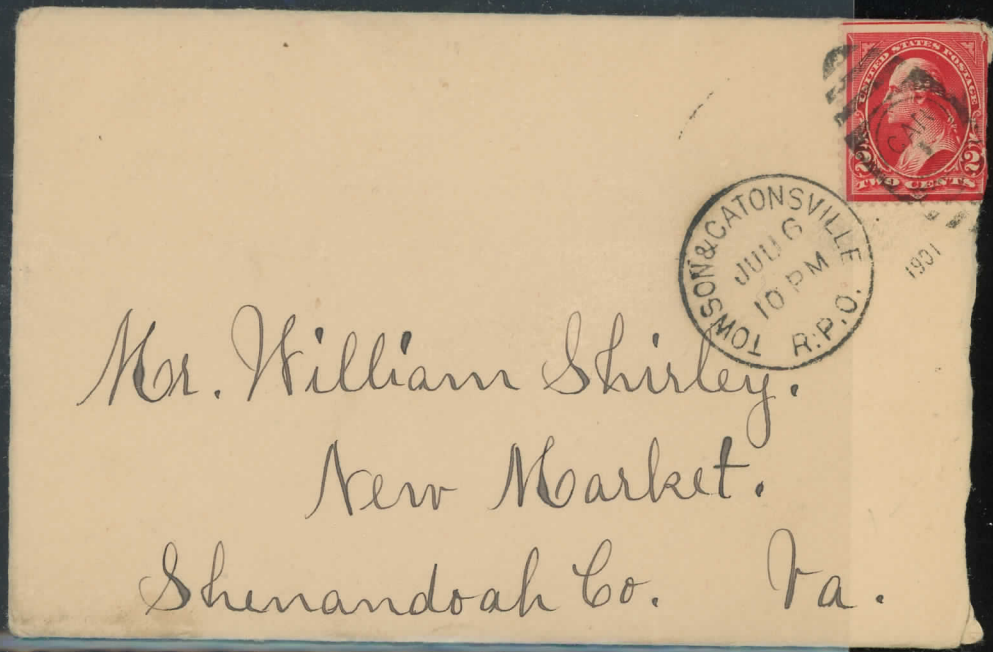 UNITED STATES POSTAGE
2 2
TWO CENTS
TOWSON & CATONSVILLE
JUL 6
10 PM
R.P.O.
1901
Mr. William Shirley.
New Market.
Shenandoah Co. Va.